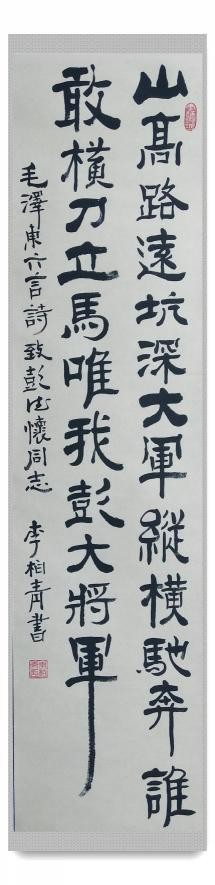 山高路遠坑深大軍縱橫馳奔誰
敢橫刀立馬唯我彭大將軍
毛澤東六言詩致彭德懷同志
李柏青書